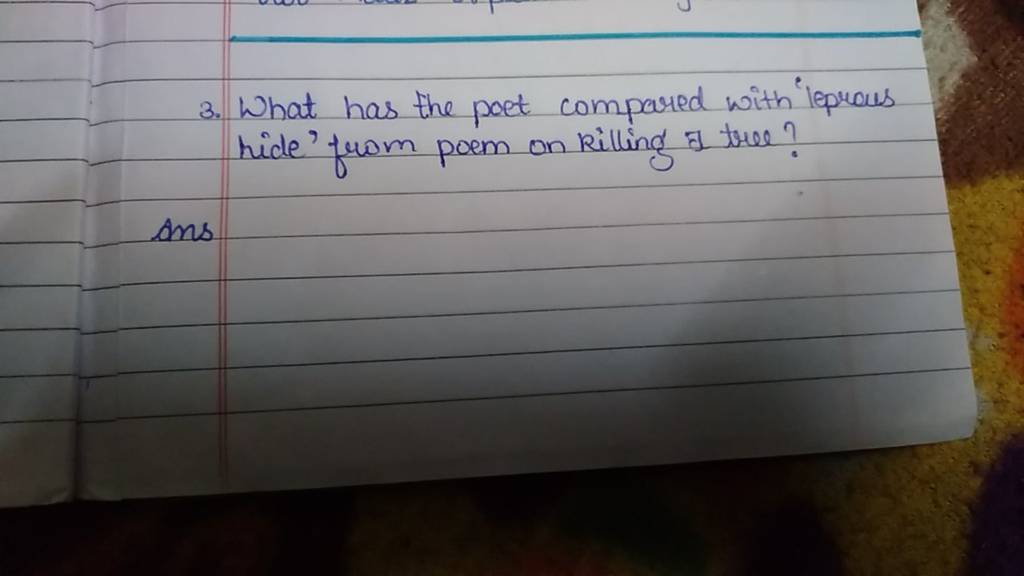 3. What has the poet compared with 'leprous
hide' from poem on Killing a tree?
Ans